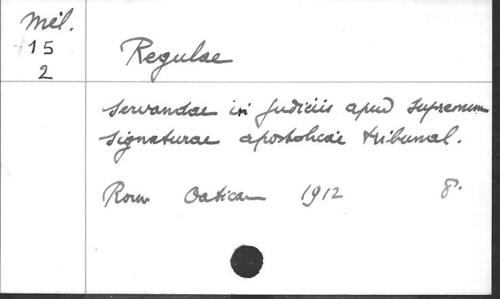 Mél.
15
2
Regulae
servandae in judiciis apud supremum
signaturae apostolicae tribunal.
Rom Vatican 1912 8°.